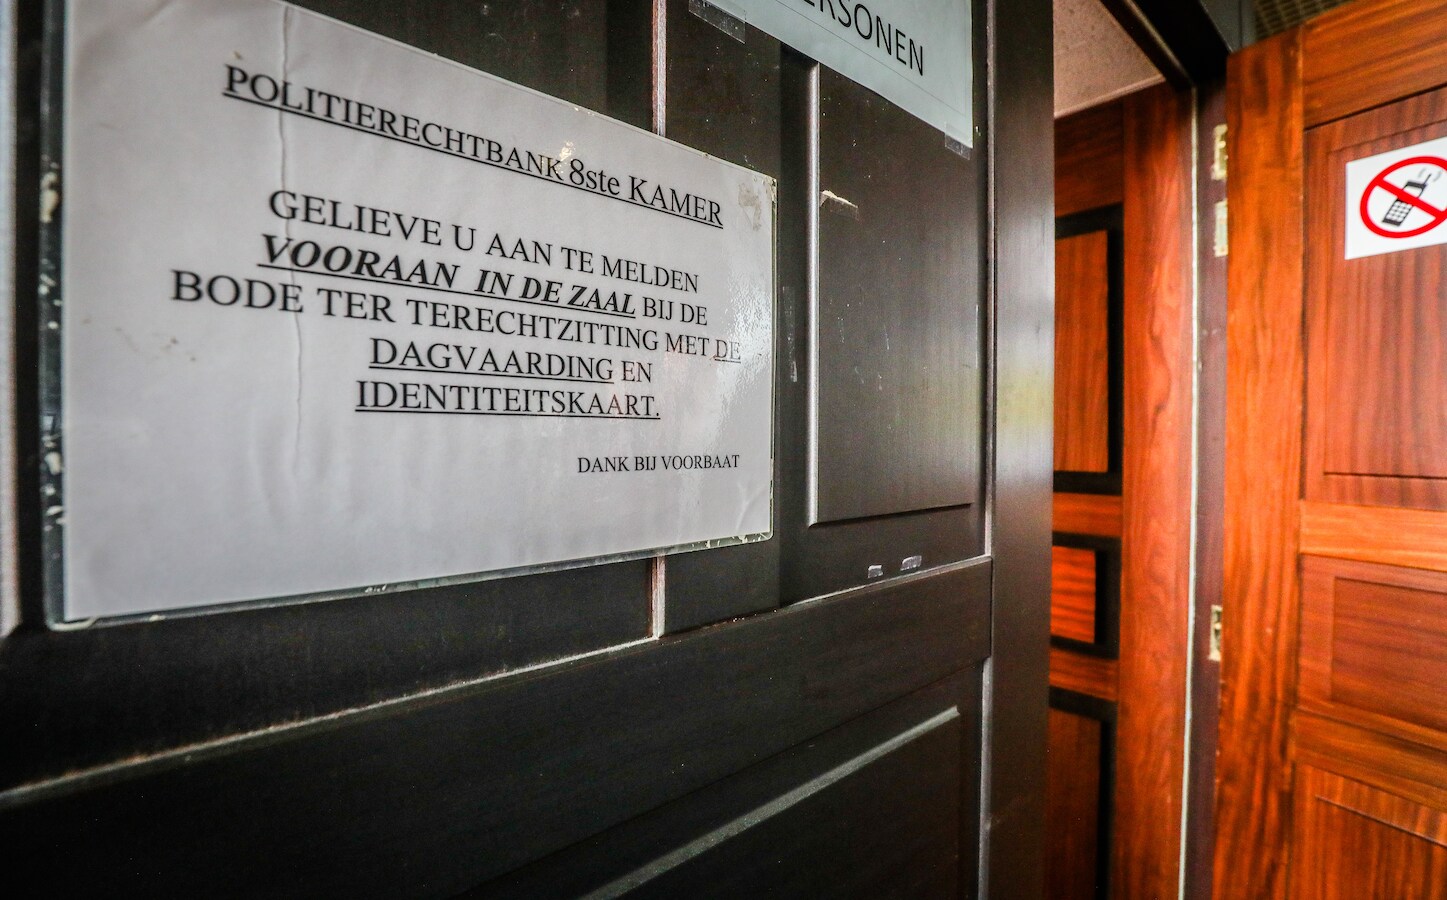 POLITIERECHTBANK 8ste KAMER
GELIEVE U AAN TE MELDEN
VOORAAN IN DE ZAAL BIJ DE
BODE TER TERECHTZITTING MET DE
DAGVAARDING EN
IDENTITEITSKAART.
DANK BIJ VOORBAAT